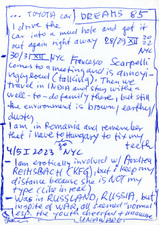 ... TOYOTA car DREAMS 85
I drive the
car into a mud hole and got it
out again right away 28/29 XII 30
NYC
30/31 XII NYC Francesco Scarpelli
comes to a meeting and is annoyi-
ngly loud (talking). Then we
travel in INDIA and stay with a
well-to-do family there, but still
the environment is brown/earthy/
dusty
I am in Romania and remember
that I have to Hungary to fix my
teeth
4/5 I 2023 NYC
- I am erotically involved w/ Andrea
REITSBACH (KFG), but I keep my
distance because she IS NOT my
type (like in real)
- Was in RUSSLAND, RUSSIA, but
inspite of WAR, all seemed "normal"
the youth cheerful and because
UNAWARE